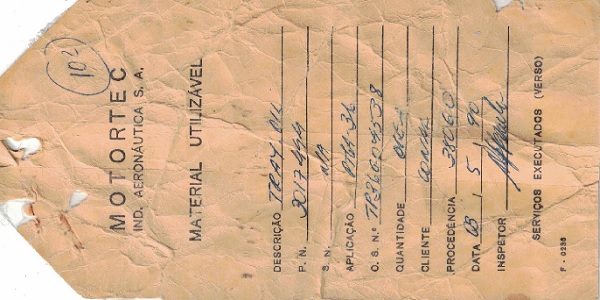 102
MOTORTEC
IND. AERONÁUTICA S. A.
MATERIAL UTILIZÁVEL
DESCRIÇÃO TRAY OIL
P. N. 3017444
S. N. N/A
APLICAÇÃO
O. S. N.º
QUANTIDADE
CLIENTE
PROCEDÊNCIA 38060
DATA 03 / 5 / 90
INSPETOR
SERVIÇOS EXECUTADOS (VERSO)
F - 0238